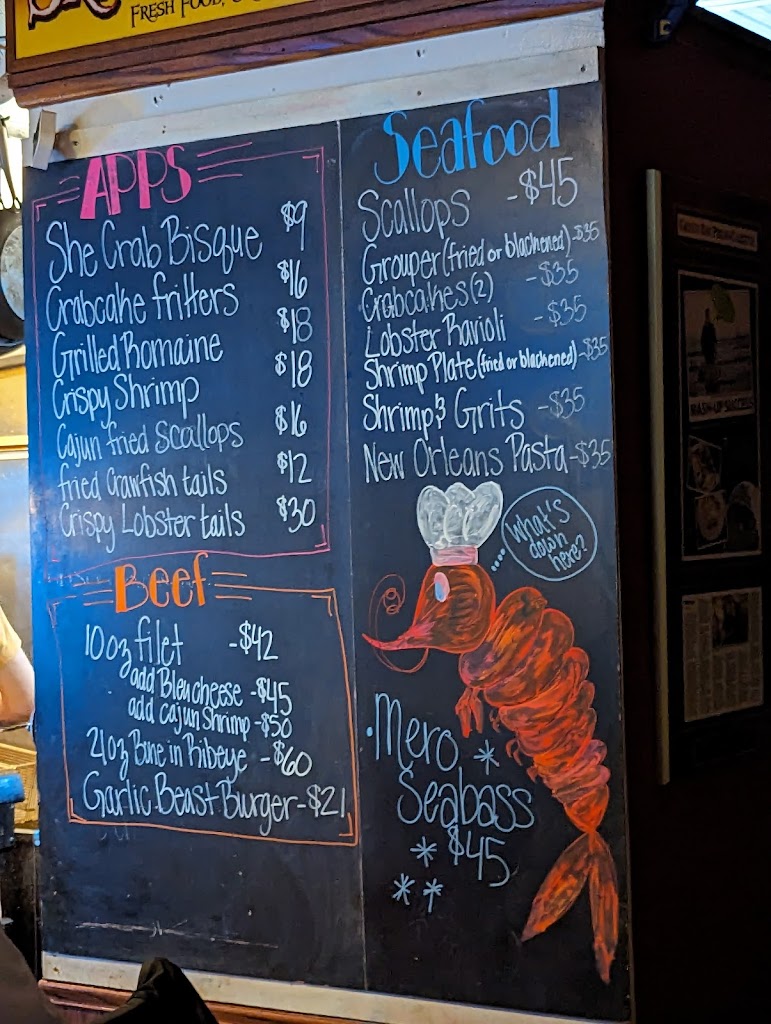 Fresh Food,
APPS
She Crab Bisque $9
Crabcake fritters $16
Grilled Romaine $18
Crispy Shrimp $18
Cajun fried Scallops $16
fried Crawfish tails $12
Crispy Lobster tails $30
Beef
10oz filet -$42
add Bleu cheese -$45
add cajun Shrimp -$50
21oz Bone in Ribeye -$60
Garlic Beast Burger -$21
Seafood
Scallops -$45
Grouper (fried or blackened) -$35
Crabcakes (2) -$35
Lobster Ravioli -$35
Shrimp Plate (fried or blackened) -$35
Shrimp & Grits -$35
New Orleans Pasta -$35
What's
down
here?
Mero
Seabass
$45